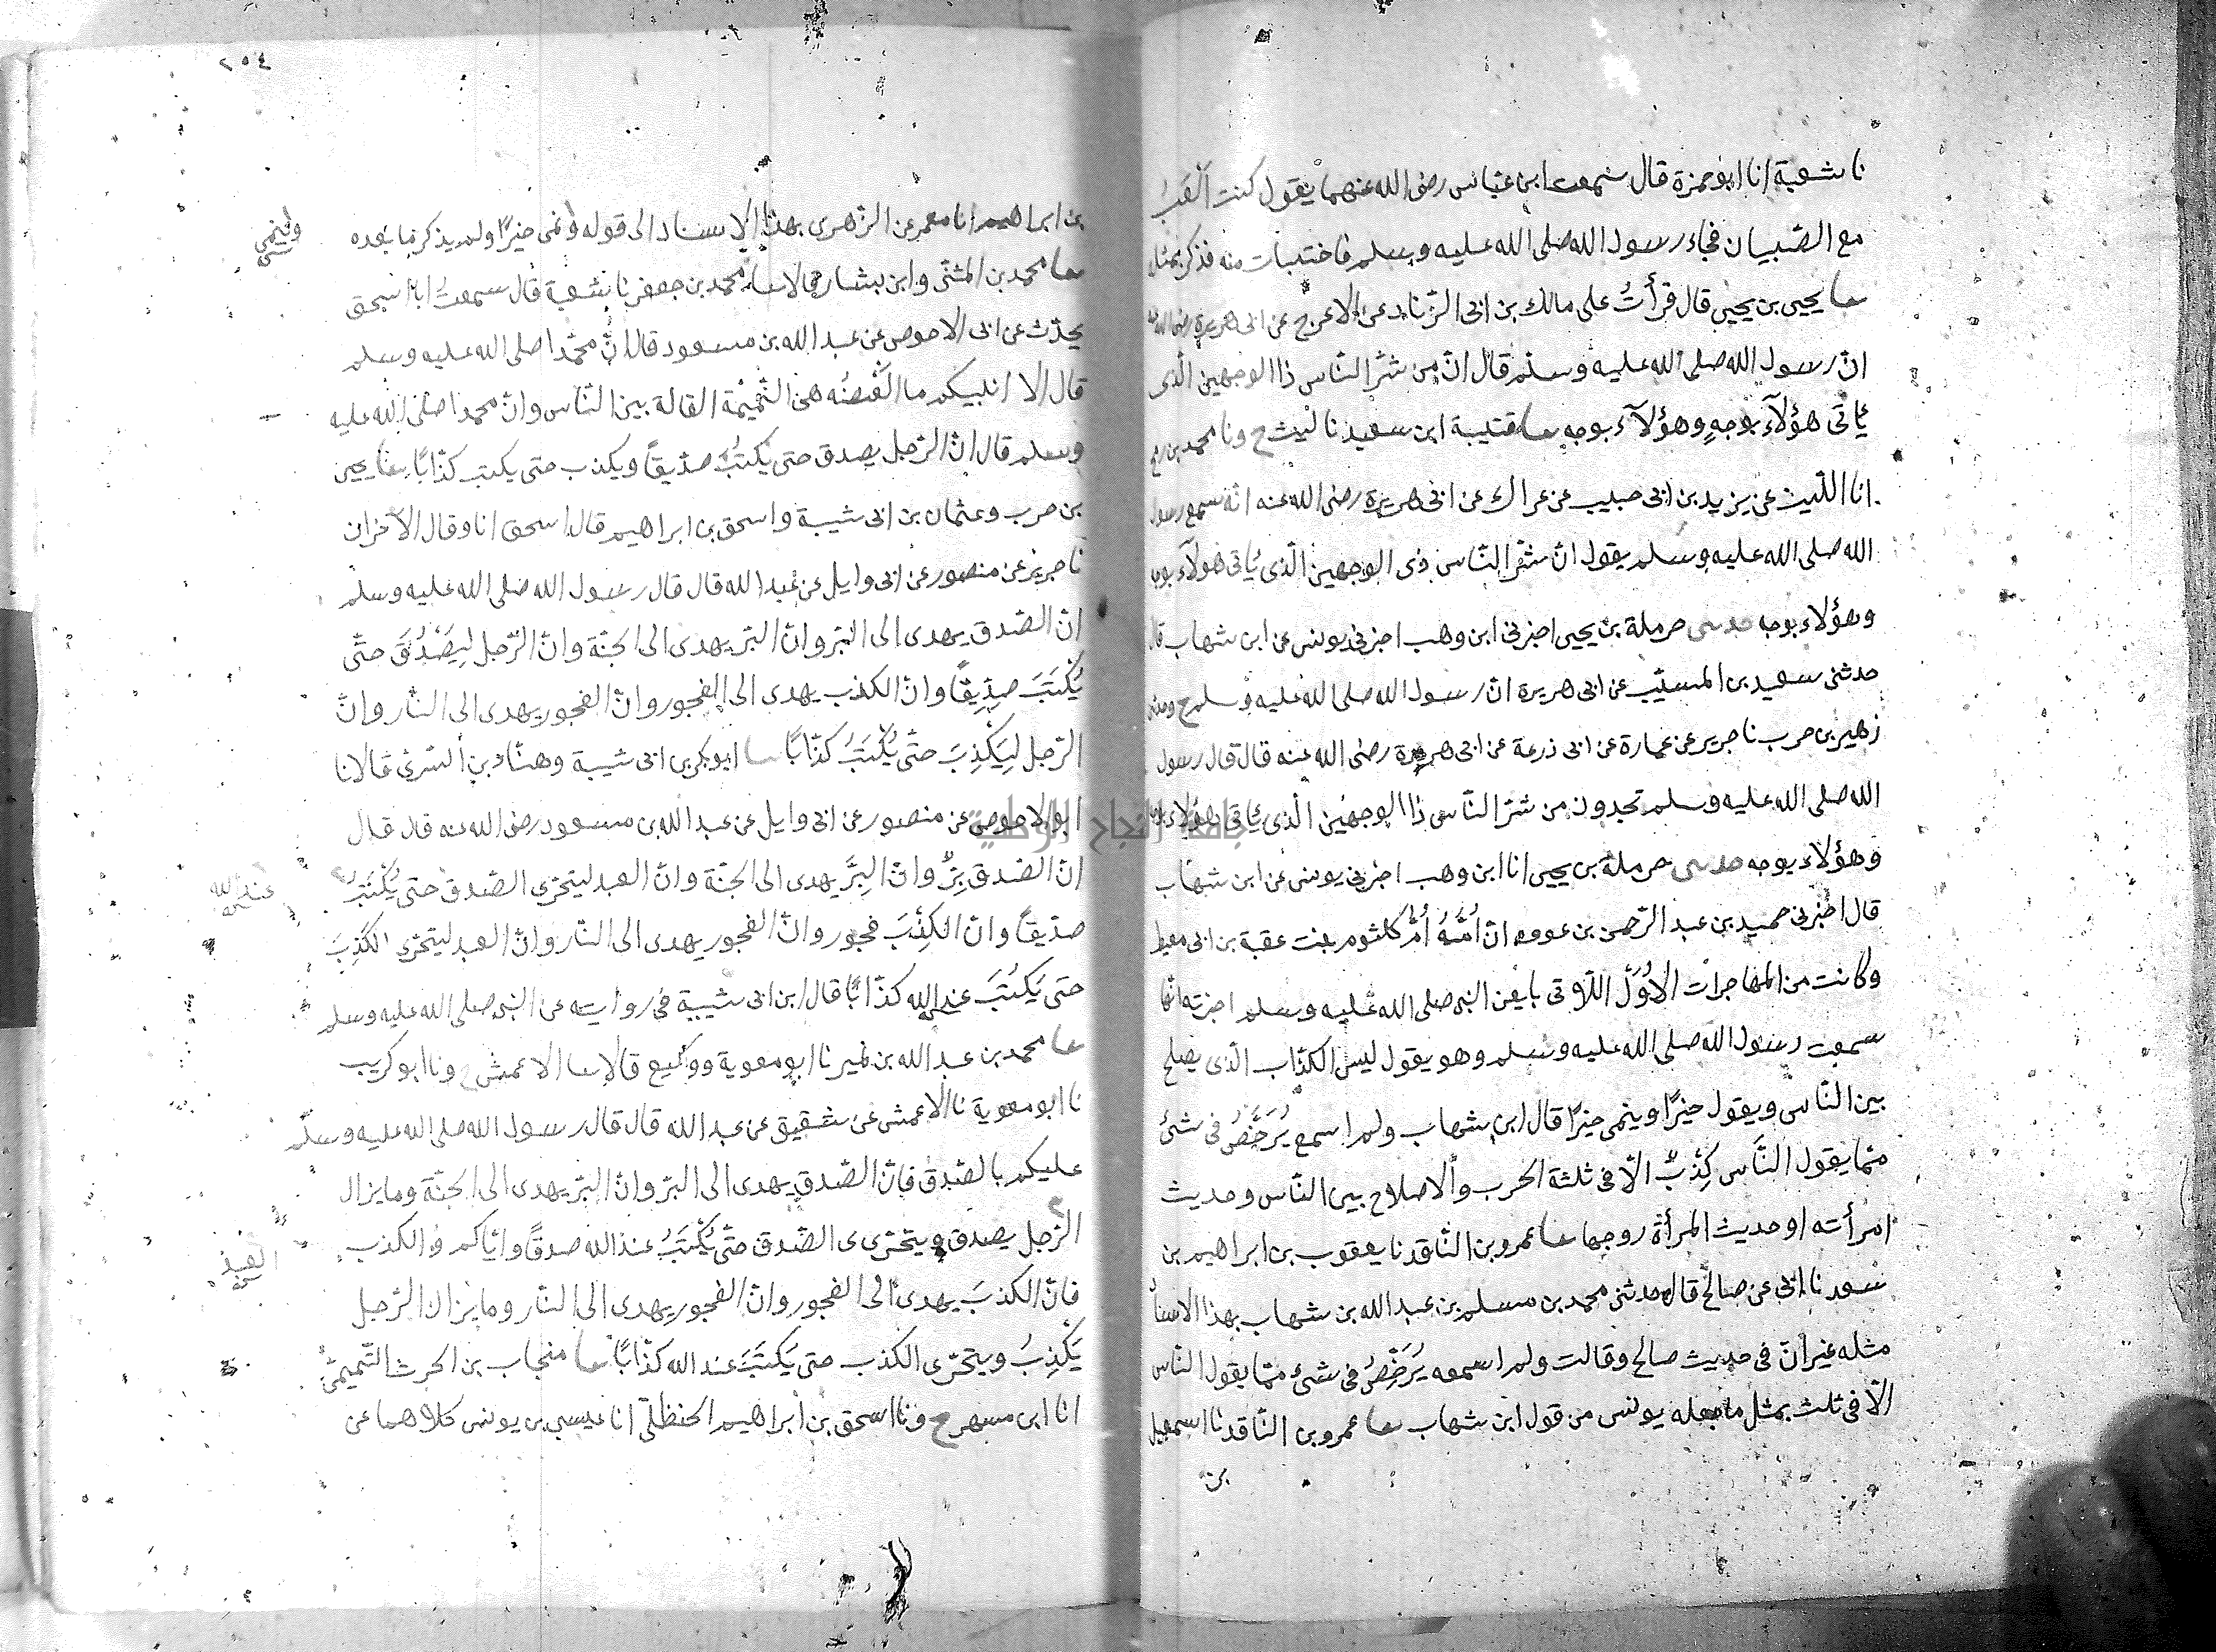 نا شعبة انا ابو حمزة قال سمعت ابن عباس رضى الله عنهما يقول كنت العَبُ
مع الصّبيان فجاء رسول الله صلى الله عليه وسلم فاختبات منه فذكر بمثله
سا يحيى بن يحيى قال قرأتُ على مالك بن ابى الزّناد عن الاعرج عن ابى هريرة رضى الله عنه
انّ رسول الله صلى الله عليه وسلم قال انّ من شرّ النّاس ذا الوجهين الّذى
يأتى هؤلآء بوجهٍ وهؤلآء بوجه سا قتيبة ابن سعيد نا ليث ح ونا محمد بن رمح
انا اللّيث عن يزيد بن ابى حبيب عن عراك عن ابى هريرة رضى الله عنه انّه سمع رسول
الله صلى الله عليه وسلم يقول انّ شرّ النّاس ذى الوجهين الّذى يأتى هولآء بوجه
وهؤلاء بوجه حدثنى حرملة بن يحيى اخبرنى ابن وهب اخبرنى يونس عن ابن شهاب قال
حدثنى سعيد بن المسيّب عن ابى هريرة انّ رسول الله صلى الله عليه وسلم ح وحدثنى
زهير بن حرب نا جرير عن عمارة عن ابى ذرعة عن ابى هريرة رضى الله عنه قال قال رسول
الله صلى الله عليه وسلم تجدون من شرّ النّاس ذا الوجهين الّذى يأتى هؤلاء بوجه
وهؤلاء بوجه حدثنى حرملة بن يحيى انا ابن وهب اخبرنى يونس عن ابن شهاب
قال اخبرنى حميد بن عبد الرّحمن بن عوف انّ اُمَّهُ اُمَّ كلثوم بنت عقبة بن ابى معيط
وكانت من المهاجرات الاُوَلِ اللّاتى بايعن النبى صلى الله عليه وسلم اخبرته انّها
سمعت رسول الله صلى الله عليه وسلم وهو يقول ليس الكذّاب الّذى يصلح
بين النّاس ويقول خيرًا وينمى خيرًا قال ابن شهاب ولم اسمع يُرَخَّصُ فى شئ
ممّا يقول النَّاس كِذْبٌ الّا فى ثلثة الحرب والاصلاح بين النّاس وحديث
امرأته او حديث المرأة زوجها سا عمرو بن النّاقد نا يعقوب بن ابراهيم بن
سعد نا ابى عن صالح قال حدثنى محمد بن مسلم بن عبد الله بن شهاب بهذا الاسناد
مثله غير انّ فى حديث صالح وقالت ولم اسمعه يُرَخِّصُ فى شئ ممّا يقول النّاس
الّا فى ثلث بمثل ما جعله يونس من قول ابن شهاب سا عمرو بن النّاقد نا اسمعيل
بن
٢٥٤
بن ابراهيم انا معمر عن الزّهرى بهذا الاسناد الى قوله ونمى خيرًا ولم يذكر ما بعده
وينمى
سا محمد بن المثنّى وابن بشار قالا سا محمد بن جعفر نا شعبة قال سمعتُ ابا اسحق
يحدّث عن ابى الاحوص عن عبد الله بن مسعود قال انّ محمّدا صلى الله عليه وسلم
قال الا انبيكم ما العَضْهُ هى النَّمِيْمَة القالة بين النّاس وانّ محمدا صلى الله عليه
وسلم قال انّ الرّجل يصدق حتى يُكْتَبَ صدّيقًا ويكذب حتى يكتب كذّابًا سا يحيى
بن حرب وعثمان بن ابى شيبة واسحق بن ابراهيم قال اسحق انا وقال الآخران
نا جرير عن منصور عن ابى وايل عن عبد الله قال قال رسول الله صلى الله عليه وسلم
انّ الصّدق يهدى الى البّر وانّ البّر يهدى الى الجنّة وانّ الرّجل لِيَصْدُقَ حتّى
يُكْتَبَ صِدِّيقًا وانّ الكذب يهدى الى الفجور وانّ الفجور يهدى الى النّار وانّ
الرّجل لِيَكْذِبَ حتّى يُكْتَبَ كذّابًا سا ابو بكر بن ابى شيبة وهنّاد بن السّرى قالا نا
ابو الاحوص عن منصور عن ابى وايل عن عبد الله بن مسعود رضى الله عنه قال قال
انّ الصّدق بِرٌّ وانّ البِرَّ يهدى الى الجنّة وانّ العبد ليتحرّى الصّدق حتى يُكْتَبَ
عند الله
صدّيقًا وانّ الكَذِبَ فجور وانّ الفجور يهدى الى النّار وانّ العبد ليتحرّى الكَذِبَ
حتى يَكتُبَ عند الله كذّابًا قال ابن ابى شيبة فى روايته عن النبى صلى الله عليه وسلم
سا محمد بن عبد الله بن نمير نا ابو معوية ووكيع قالا سا الاعمش ح ونا ابو كريب
نا ابو معوية نا الاعمش عن شقيق عن عبد الله قال قال رسول الله صلى الله عليه وسلّم
عليكم بالصّدق فانّ الصّدق يهدى الى البرّ وانّ البرّ يهدى الى الجنّة وما يزال
الرّجل يصدق ويتحرّى الصّدق حتّى يُكْتَبَ عند الله صدقًا وايّاكم والكذب
العبد
فانّ الكذبَ يهدى الى الفجور وانّ الفجور يهدى الى النّار وما يزال الرّجل
يَكْذِبُ ويتحرّى الكذب حتى يَكتَبَ عند الله كذّابًا سا منجاب بن الحرث التّميمىّ
انا ابن مسهر ح ونا اسحق بن ابراهيم الحنظلىّ انا عيسى بن يونس كلاهما عن
جامعة النجاح الوطنية